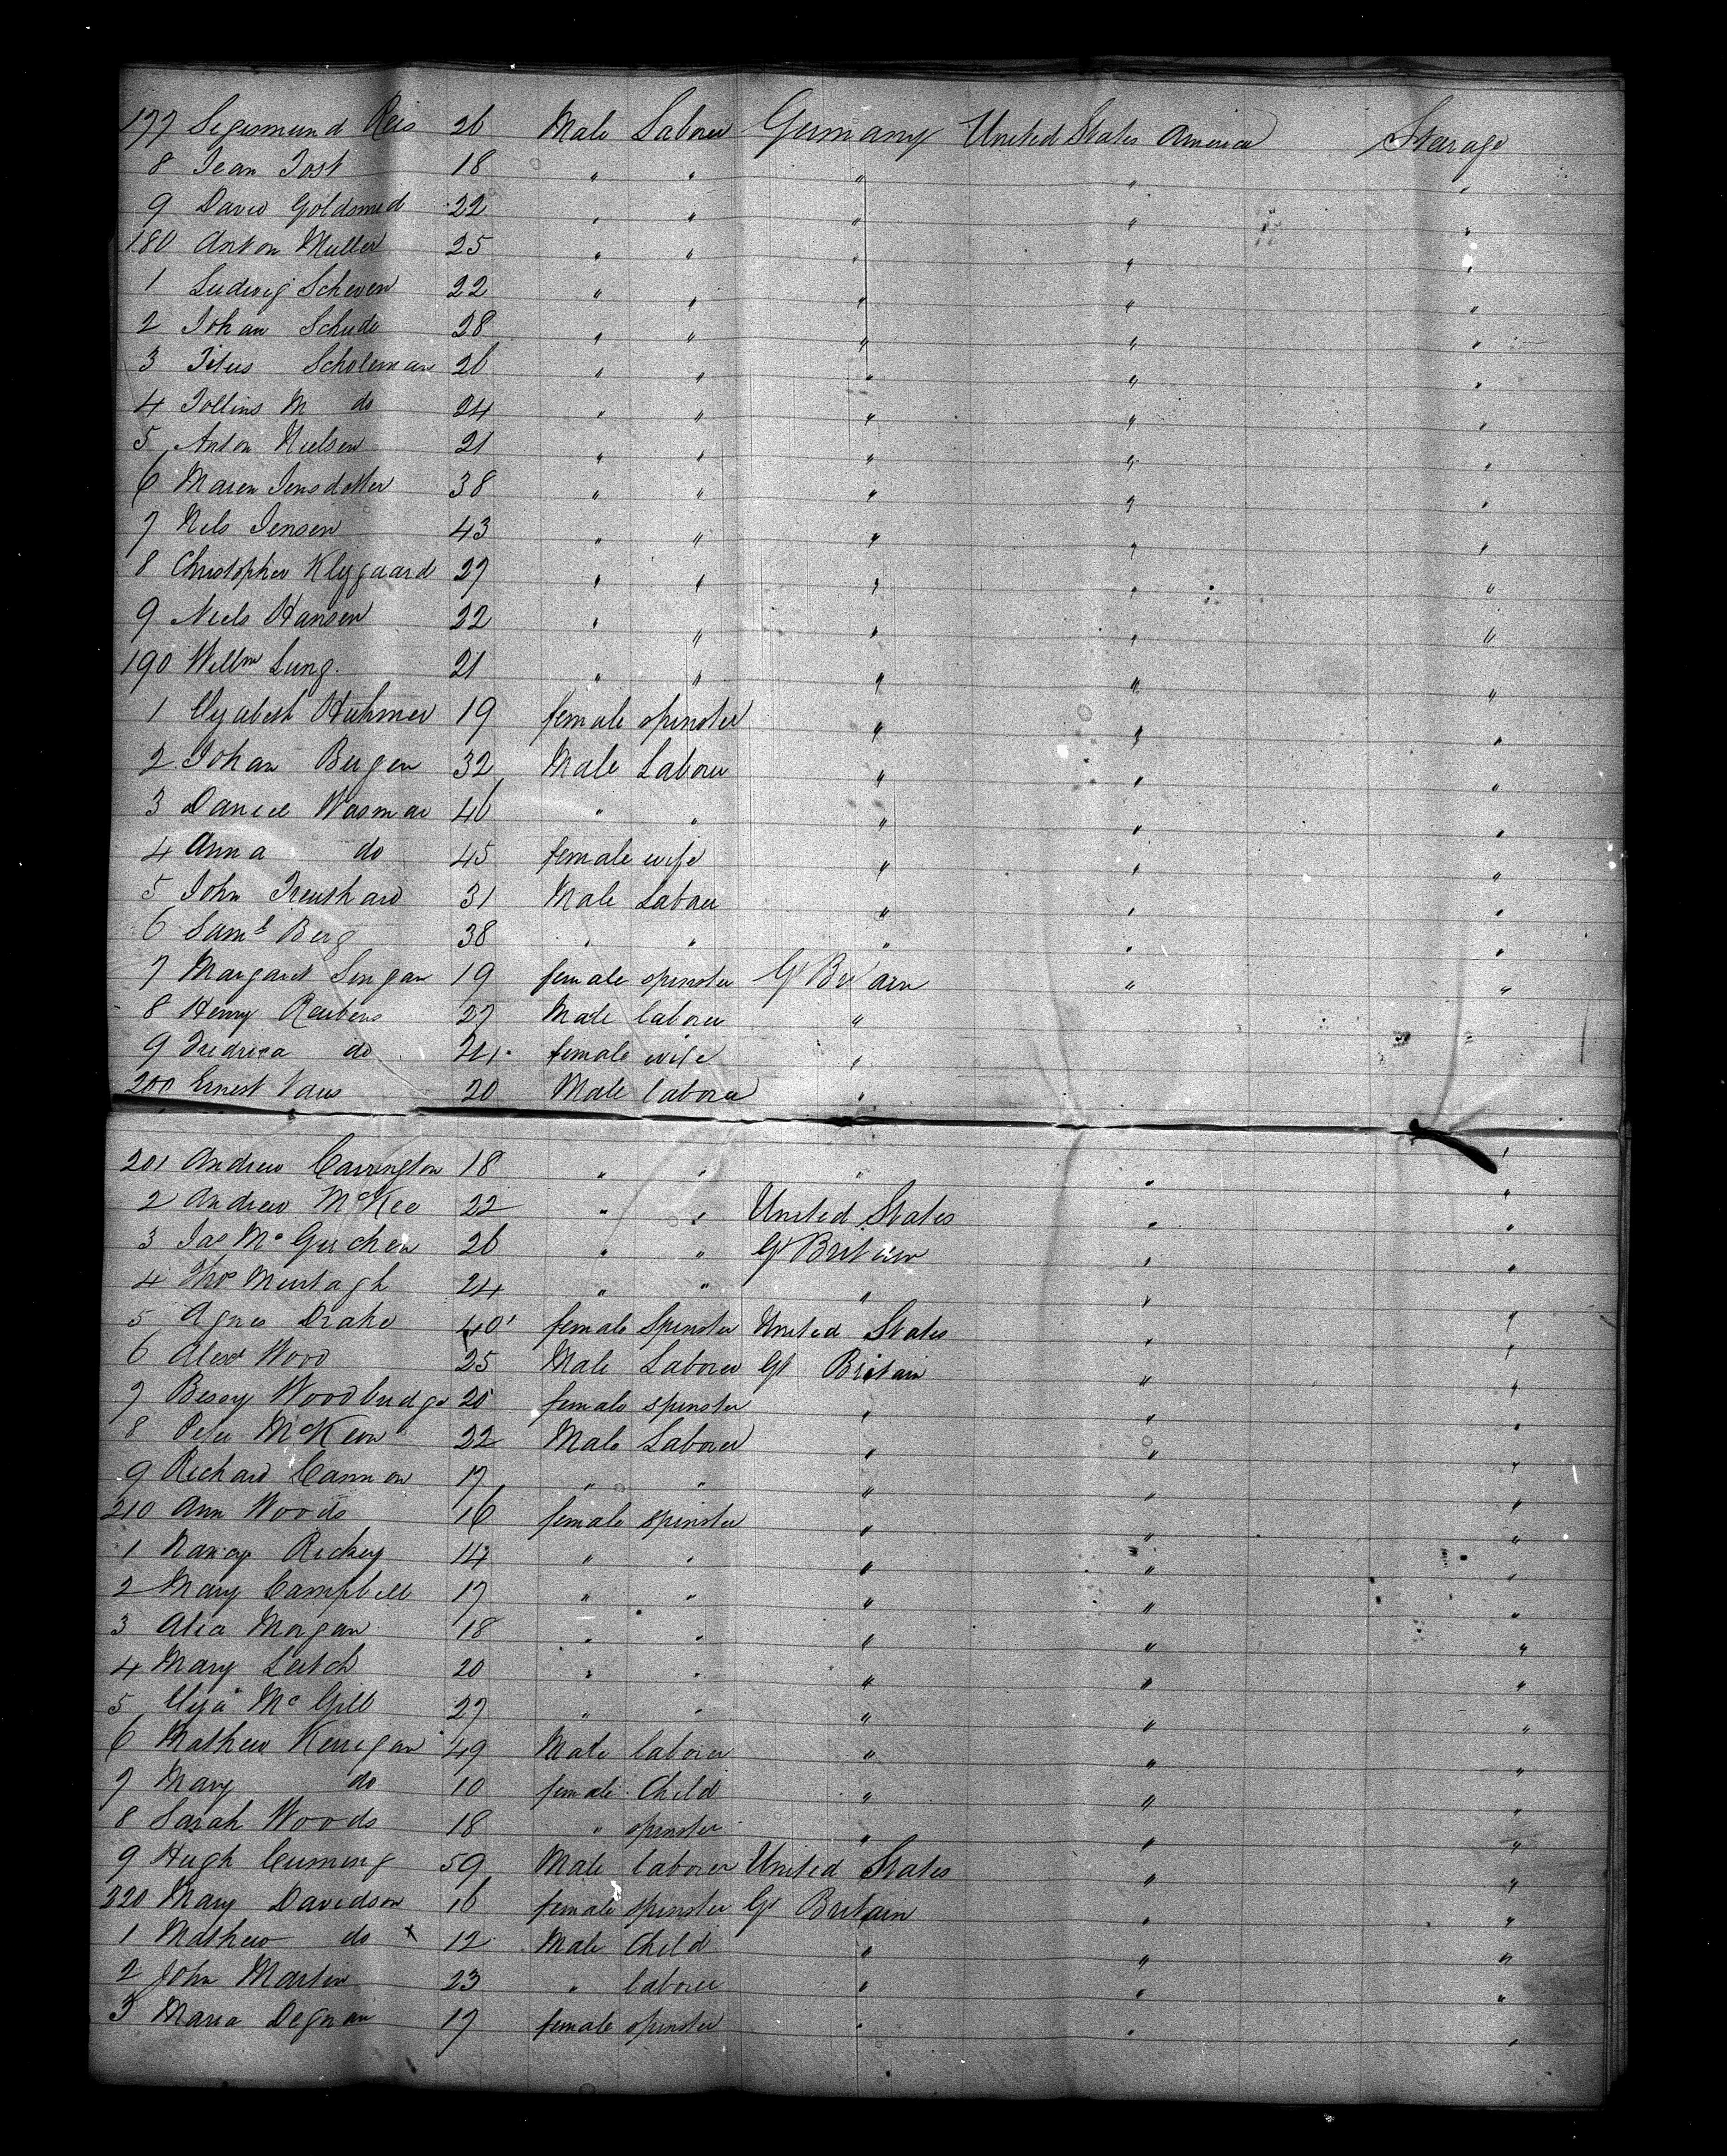 177 Segismund Reis 26 Male Laborer Germany United States America Stearage
8 Jean Jost 18 " " " " "
9 David Goldsmid 22 " " " " "
180 Anton Muller 25 " " " " "
1 Ludwig Scheven 22 " " " " "
2 Johan Schude 28 " " " " "
3 Titus Scholeman 26 " " " " "
4 Jollins M do 24 " " " " "
5 Anton Nielsen 21 " " " " "
6 Maren Jensdotter 38 " " " " "
7 Nels Jensen 43 " " " " "
8 Christopher Klygaard 27 " " " " "
9 Niels Hansen 22 " " " " "
190 Willm Lung 21 " " " " "
1 Elyabeth Huhmer 19 female spinster " " "
2 Johan Bergen 32 Male Laborer " " "
3 Daniel Wasmar 46 " " " " "
4 Anna do 45 female wife " " "
5 John Trenthard 31 Male Laborer " " "
6 Saml Berg 38 " " " " "
7 Margaret Lingan 19 female spinster Gt Britain " "
8 Henry Reubens 27 Male laborer "
9 Fredrica do 21 female wife "
200 Ernest Vaus 20 Male laborer "
201 Andrew Carrington 18 " " " " "
2 Andrew McKee 22 " " United States " "
3 Jas McGuchen 26 " " Gt Britain " "
4 Thos Murtagh 24 " " " " "
5 Agnes Drake 40 female Spinster United States " "
6 Alexr Wood 25 Male Laborer Gt Britain " "
7 Bessy Woodbudge 20 female spinster " " "
8 Peter McKeon 22 Male Laborer " " "
9 Richard Cannon 17 " " " " "
210 Ann Woods 16 female spinster " " "
1 Nancy Rickey 14 " " " " "
2 Mary Campbell 17 " " " " "
3 Alice Morgan 18 " " " " "
4 Mary Leitch 20 " " " " "
5 Elya McGill 27 " " " " "
6 Mathew Kerrigan 49 Male laborer " " "
7 Mary do 10 female Child " " "
8 Sarah Woods 18 " spinster " " "
9 Hugh Cuming 59 Male laborer United States " "
220 Mary Davidson 16 female spinster Gt Britain " "
1 Mathew do x 12 Male Child " " "
2 John Martin 23 " laborer " " "
3 Maria Degnan 17 female spinster " " "